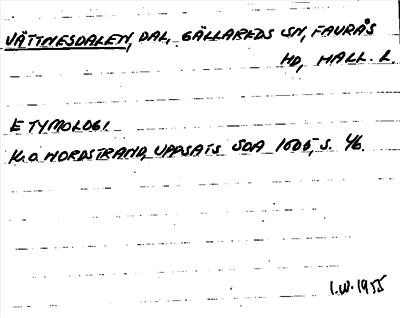 VÄTTNESDALEN, DAL, GÄLLAREDS SN, FAURÅS
HD, HALL. L.
ETYMOLOGI
K.O. NORDSTRAND, UPPSATS SOA 1605, S. 46.
I.W. 1955